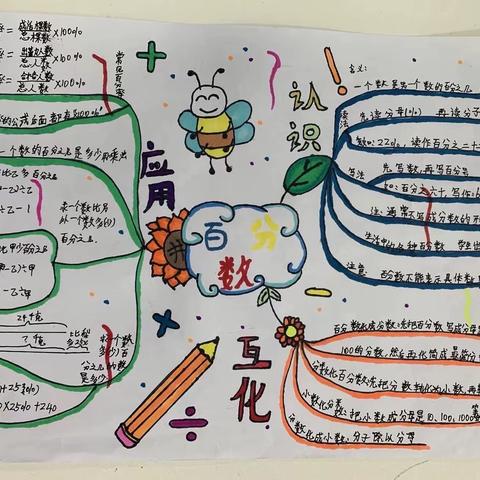 率= 成活棵数/总棵数 ×100%
率= 出勤人数/总人数 ×100%
率= 合格人数/总人数 ×100%
常见百分率
的公式后面都有×100%
一个数的百分之几是多少用乘法
比乙多百分之几
-乙)÷乙
÷乙-1
求一个数比另
外一个数多(少)
百分之几
比甲少百分之几
-乙)÷甲
-乙÷甲
应用
认识
互化
百分数
含义:
一个数是另一个数的百分之几
读法
先读分母(%) 再读分子
如:22%, 读作百分之二十
写法
先写数,再写百分号
如:百分之六十,写作:
注:通常不写成分数的形
生活中的各种百分数
注意:
百分数不能表示具体数
百分数化成分数:先把百分数写成分母
100的分数,然后再化简成最简分
分数化百分数:先把分数转化为小数,再
小数化分数:把小数成分母是10、100、1000等
分数化成小数:分子除以分母
比多少
求一个数
多(少)百
分之几的数
是多少
+25%)
×25%+240